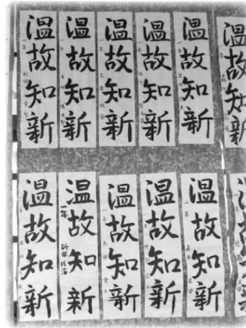 温故知新
温故知新
温故知新
温故知新
温故知新
温故知新
温故知新
温故知新
温故知新
温故知新
温故知新